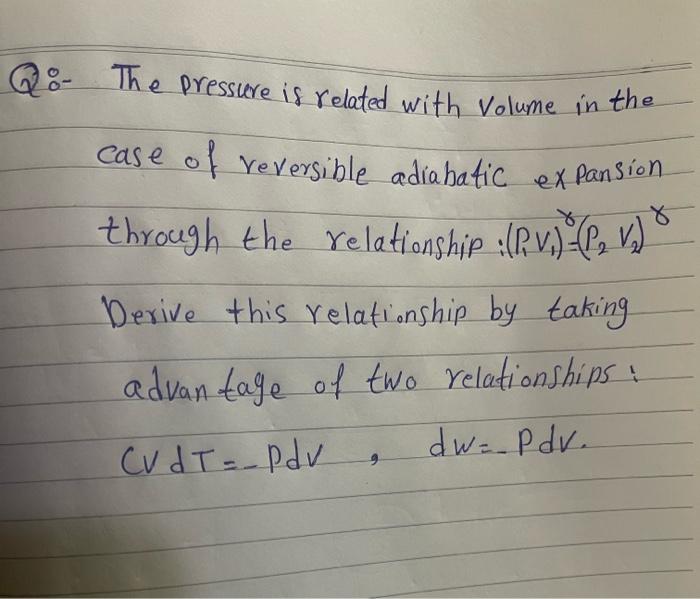 Q:- The pressure is related with volume in the
case of reversible adiabatic expansion
through the relationship :(P₁V₁)^γ=(P₂ V₂)^γ
Derive this relationship by taking
advantage of two relationships :
CV dT = - Pdv , dw = - Pdv.